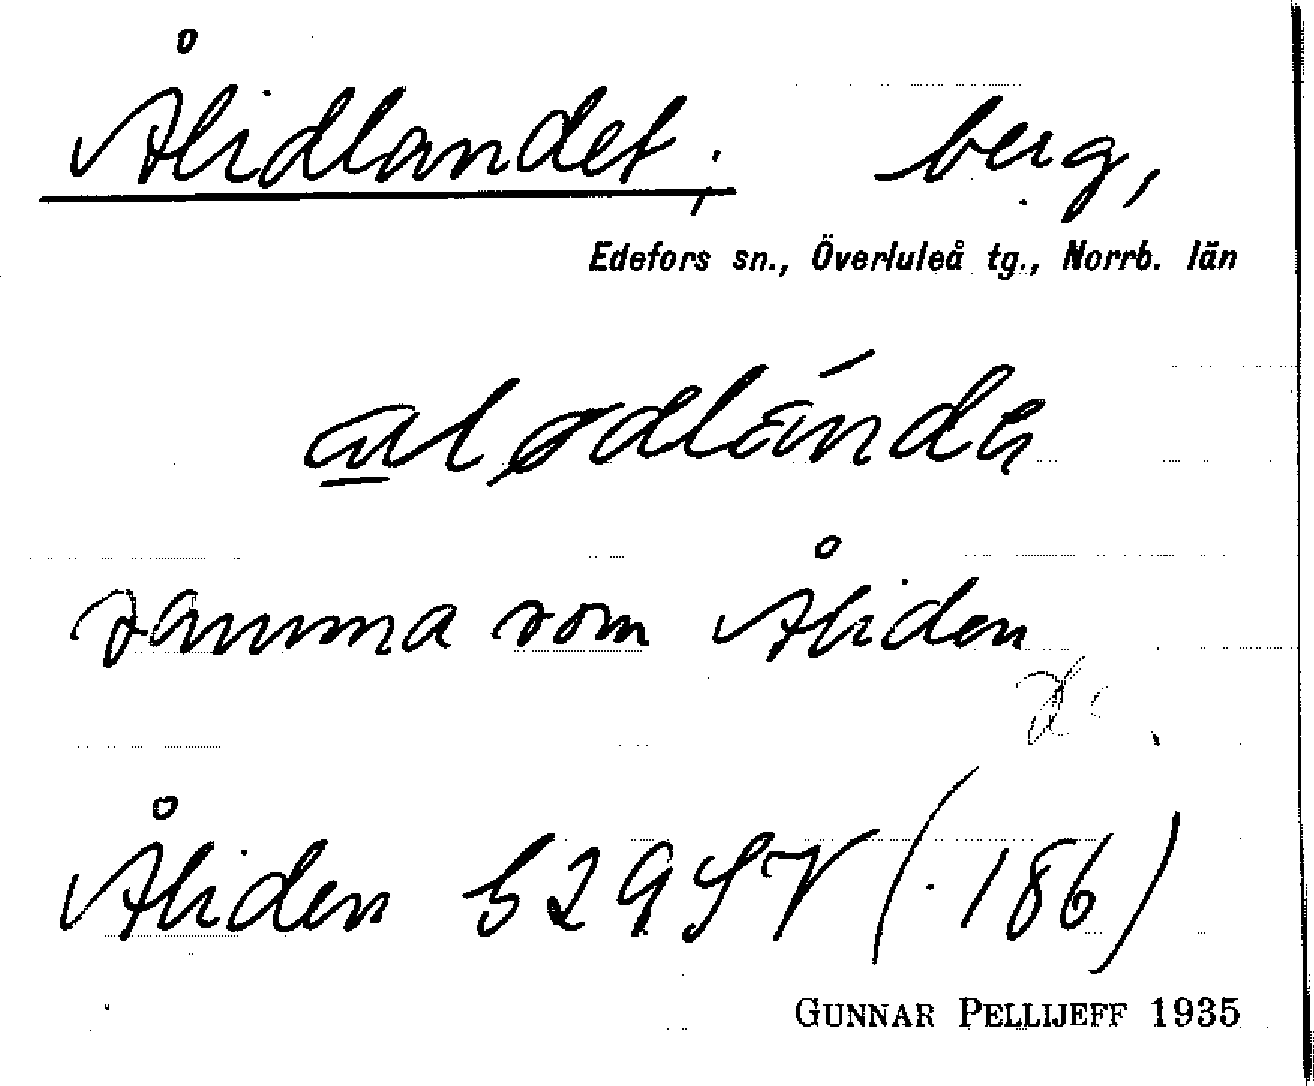 Ålidlandet; berg,
Edefors sn., Överluleå tg., Norrb. län
samma som Åliden
Åliden 529SV (186)
GUNNAR PELLIJEFF 1935